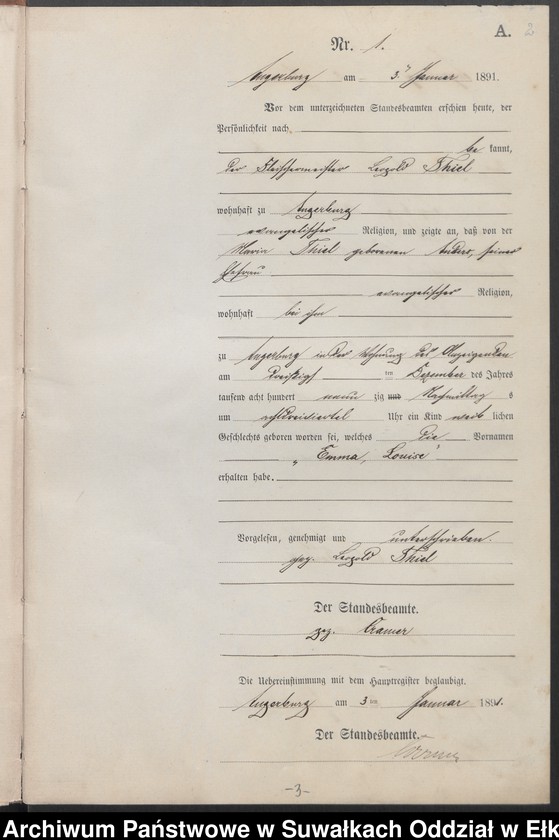 A. 2
Nr. 1.
Angerburg am 3ten Januar 1891.
Vor dem unterzeichneten Standesbeamten erschien heute, der
Persönlichkeit nach,
be kannt,
der Fleischermeister Leopold Thiel
wohnhaft zu Angerburg
evangelischer Religion, und zeigte an, daß von der
Maria Thiel geborenen Anders, seiner
Ehefrau
evangelischer Religion,
wohnhaft bei ihm
zu Angerburg in der Wohnung des Anzeigenden
am dreißigst ten Dezember des Jahres
tausend acht hundert neun zig und Nachmittag s
um achtdreiviertel Uhr ein Kind weib lichen
Geschlechts geboren worden sei, welches die Vornamen
„Emma, Louise"
erhalten habe.
Vorgelesen, genehmigt und unterschrieben.
gez. Leopold Thiel
Der Standesbeamte.
gez. Cramer
Die Uebereinstimmung mit dem Hauptregister beglaubigt.
Angerburg am 3 ten Januar 1891.
Der Standesbeamte.
-3-
Archiwum Państwowe w Suwałkach Oddział w Ełk